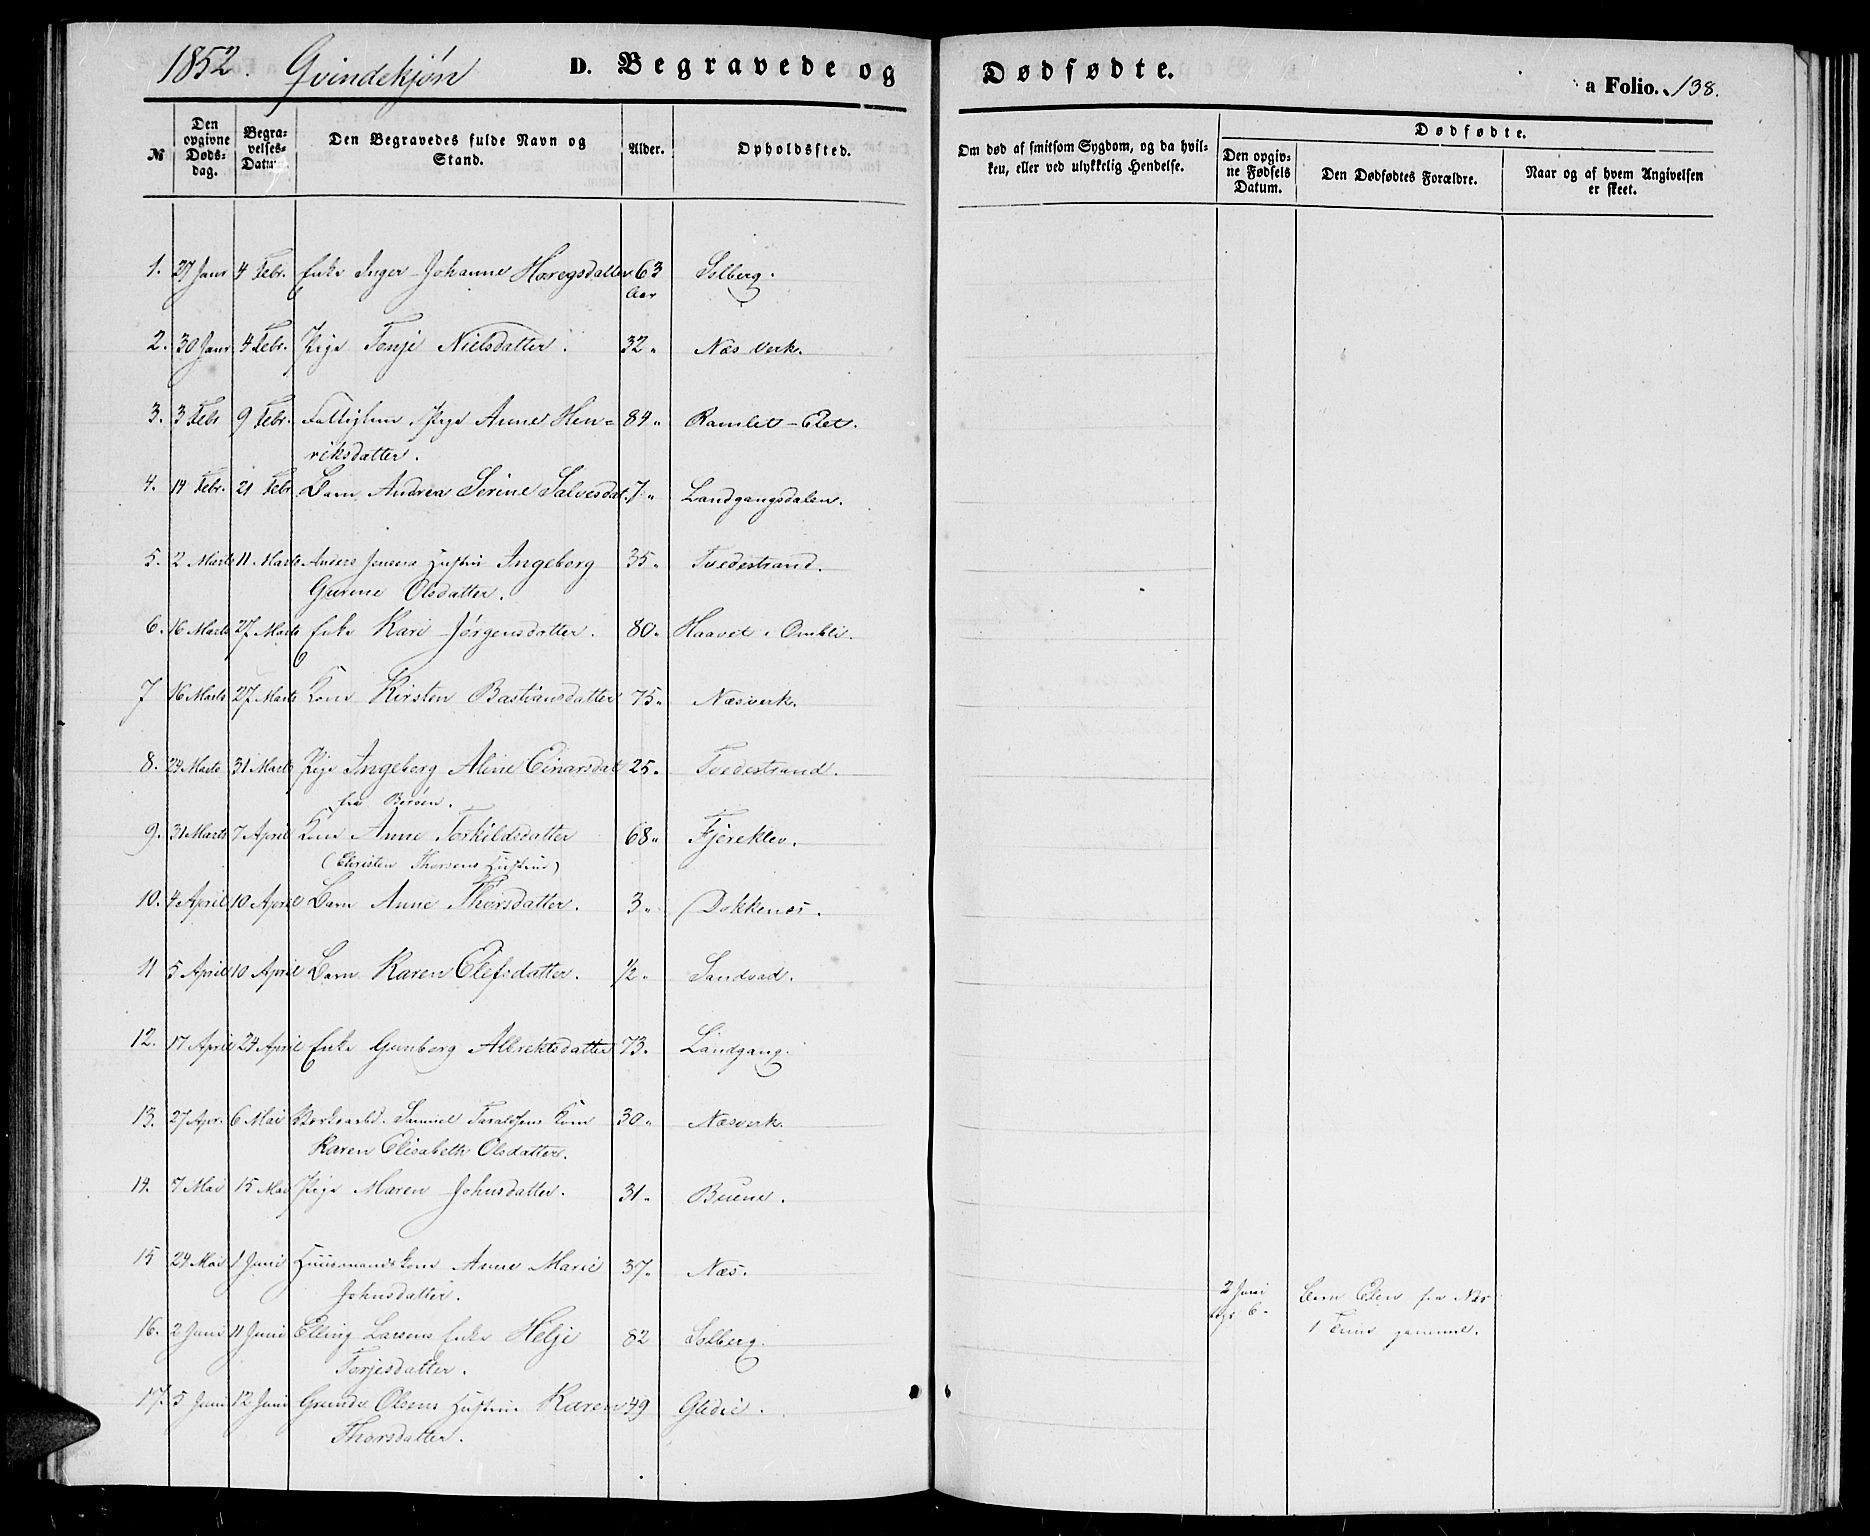 1852. Qvindekjøn D. Begravede og Dødfødte. a Folio. 138.
№ Den opgivne Døds-dag. Begra-velses-Datum. Den Begravedes fulde Navn og Stand. Alder. Opholdssted. Om død af smitsom Sygdom, og da hvil-ken, eller ved ulykkelig Hendelse. Dødfødte. Den opgiv-ne Fødsels Datum. Den Dødfødtes Forældre. Naar og af hvem Angivelsen er skeet.
1. 27 Janr 4 Febr. Enke Inger Johanne 63 Aar Solberg.
2. 30 Janr 4 Febr. Pige Tonje Nielsdatter. 32 " Næs Verk.
3. 3 Febr 9 Febr. Pige Anne Hen= 84 " Ramlet-Elet.
riksdatter.
4. 14 Febr. 21 Febr Barn Andrea Serine Salvesdat. 7 " Landgangsdalen.
5. 2 Marts 11 Marts Anders Jensens Hustru Ingeborg 35 " Tvedestrand.
Gurine Olsdatter.
6. 16 Marts 27 Marts Enke Kari Jørgensdatter. 80 " Haavet i Ombli.
7 16 Marts 27 Marts Kone Kirsten Bastiansdatter 75 " Næsverk.
8. 24 Marts 31 Marts Pige Ingeborg Aline Einarsdat 25 " Tvedestrand.
fra Borøen.
9. 31 Marts 7 April Kone Anne Torkildsdatter 68 " Fjereklev.
(Christen Thorsens Hustrue)
10. 4 April 10 April Barn Anne Thorsdatter. 3 " Dokkenes.
11 5 April 10 April Barn Karen Elefsdatter. 1/2 " Sandvad.
12. 17 April 24 April Enke Gunborg Albrektsdatter 73 " Landgang.
13. 27 Apr. 6 Mai Samuel Taralsens Kone 30 " Næsverk.
Karen Elisabeth Olsdatter.
14. 7 Mai 15 Mai Pige Maren Johnsdatter. 31 " Buene.
15 24 Mai 1 Juni Huusmands Kone Anne Marie 37 " Næs.
Johnsdatter.
2 Juni Barn Elen fra Næs
6 1 Time gammel.
16. 2 Juni 11 Juni Elling Larsens Enke Helje 82 Solberg.
Torjesdatter.
17. 5 Juni 12 Juni Grunde Olsens Hustru Karen 49 Gliddi.
Thorsdatter.